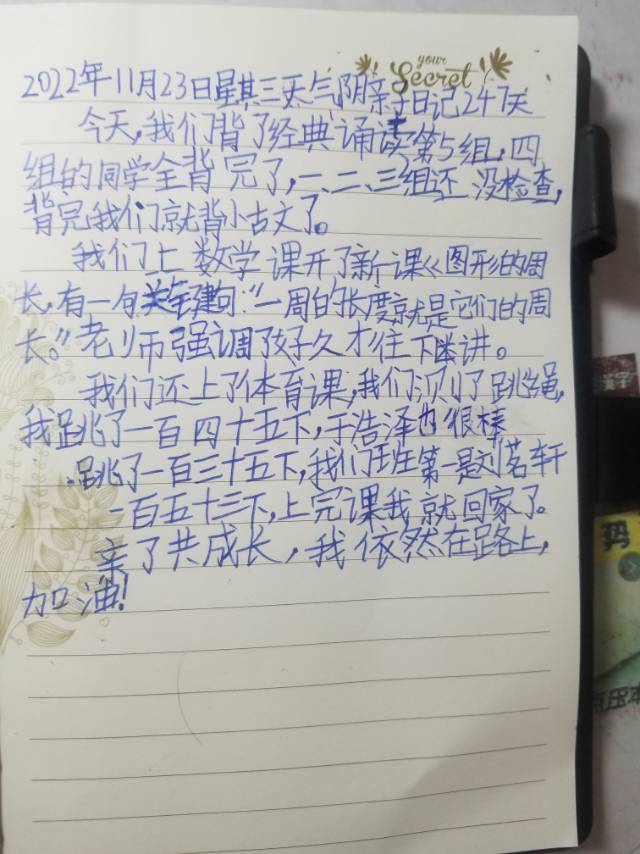 your
Secret
2022年11月23日星其三天气阴亲子日记247天
今天,我们背了经典诵读第5组,四
组的同学全背完了,一、二、三组还没检查,
背完我们就背小古文了。
我们上数学课开了新课《图形的周
长,有一句关键句:“一周的长度就是它们的周
长。”老师强调了好久才往下继讲。
我们还上了体育课,我们测了跳绳,
我跳了一百四十五下,于浩泽也很棒
跳了一百三十五下,我们班第一是刘茗轩
一百五十三下,上完课我就回家了。
亲了共成长,我依然在路上,
加油!